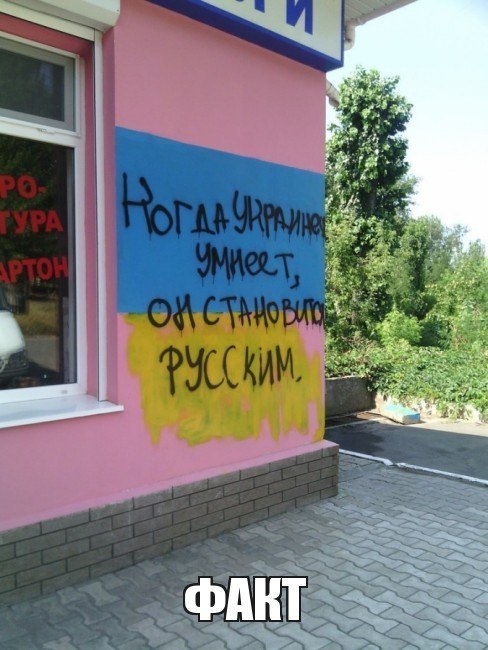 РО-
ТУРА
АРТОН
Когда украинец
умнеет,
он становится
русским.
ФАКТ